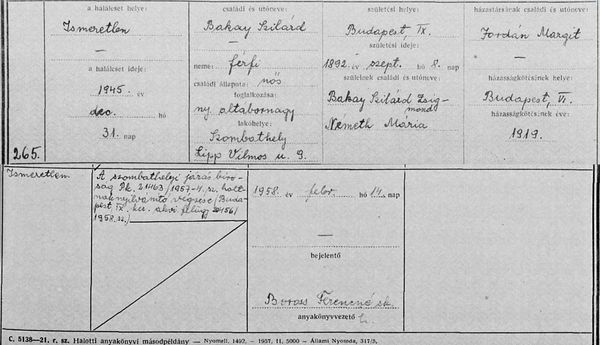 a haláleset helye:
Ismeretlen
—
a haláleset ideje:
1945. év
dec. hó
31. nap
265.
családi és utóneve:
Bakay Szilárd
neme: férfi
családi állapota: nős
foglalkozása:
ny. altábornagy
lakóhelye:
Szombathely
Lipp Vilmos u. 9.
születési helye:
Budapest IX.
születési ideje:
1892. év szept. hó 8. nap
szüleinek családi és utóneve:
Bakay Szilárd Zsig-
mond
Németh Mária
házastársának családi és utóneve:
Jordán Margit
—
házasságkötésének helye:
Budapest, VI.
házasságkötésének éve:
1919.
Ismeretlen
A szombathelyi járásbíró-
ság Pk. 21463/1957-4. sz. holt-
naknyilvánító végzése (Buda-
pest IX. ker. akvi felügy.
1958. sz.)
1958. év febr. hó 14. nap
—
bejelentő
Boross Ferencné sk.
anyakönyvvezető
C. 5138—21. r. sz. Halotti anyakönyvi másodpéldány — Nyomell. 1492. – 1957. 11. 5000 – Állami Nyomda, 317/3.